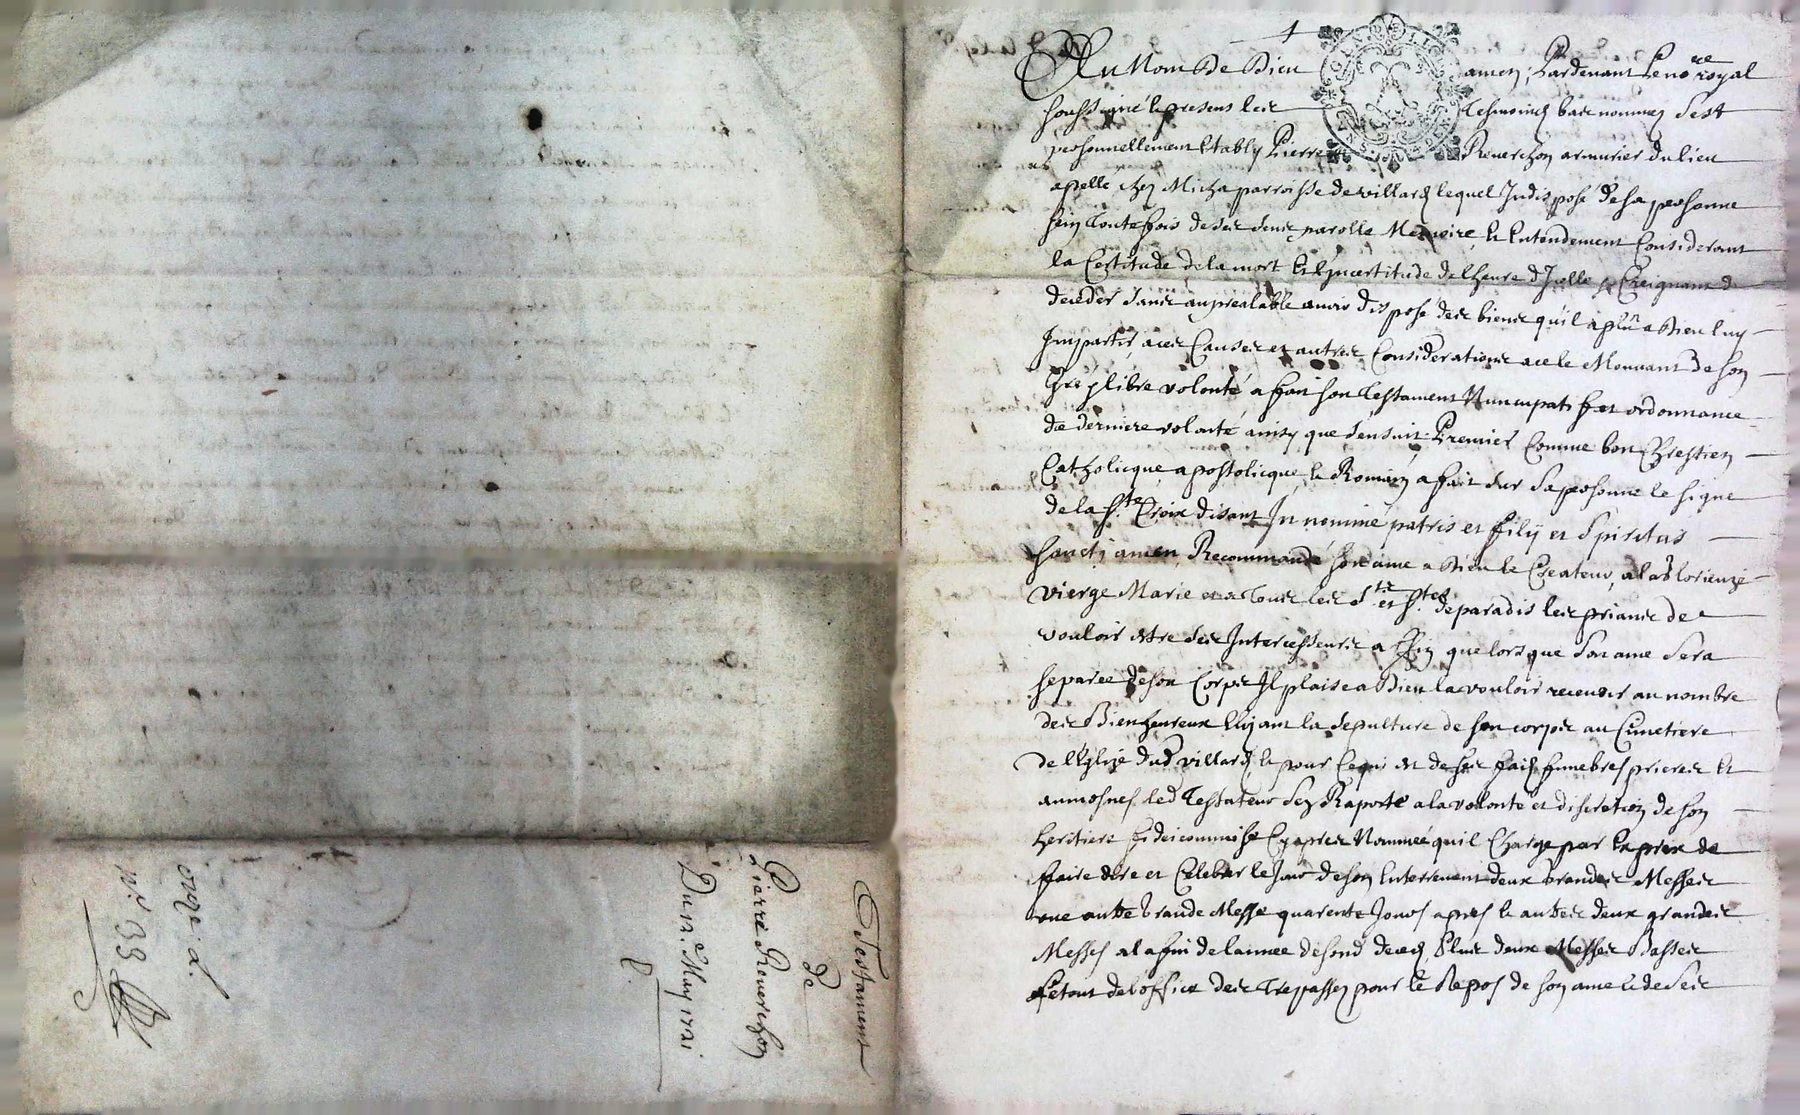 Testament
de
Pierre Reverchon
Du 12.e May 1721
onze. d.
n.o 138
Au Nom De Dieu amen, Pardevant Le no.re royal
soussigné Et presens les Tesmoins bas nommez S'est
personnellement Estably Pierre Reverchon armurier du lieu
apellé chez Micha parroisse de villards lequel Indisposé de sa personne
sein Toutesfois de ses sens parolle Memoire, Et Entendement Considerant
la Certitude de la mort Et l'Incertitude de l'heure d'Icelle, Et Creignant de
deceder sans au prealable avoir disposé des biens qu'il a plû a Dieu luy
Impartir, a ces Causes et autres Considerations a ce le Mouvant De son
Gré et libre volonté a fait son Testament Nuncupatif et ordonnance
de derniere volonté ainsy que s'ensuit. Premier Comme bon Chrestien
Catholicque, apostolicque, Et Romain a fait sur Sa personne le signe
de la S.te Croix disant In nomine patris et filij et Spiritus
Sancti amen, Recommandé son ame a Dieu le Createur, a la Glorieuze
vierge Marie et a Tous les S.ts et S.tes de paradis les priants de
vouloir estre ses Intercesseurs a ffin que lors que Son ame Sera
separée de son Corps Il plaise a Dieu la vouloir recevoir au nombre
des Bienheureux Elizant la sepulture de son corps au Cimetiere
de l'Eglize dud villards, Et pour Ce qui est de ses fais funebres prieres Et
aumosnes led Testateur s'en Raporte a la volonté et discretion de son
heritiere fideicommise Cy apres Nommée qu'il Charge par Exprex de
ffaire dire et Celebrer le Jour de son Enterrement deux Grandes Messes
une autre Grande Messe quarente Jours apres Et autres deux grandes
Messes a la fin de l'annee de sond decedz, Plus deux Messes Basses
Le tout de l'office des Trepassez pour le Repos de son ame Et de Ses